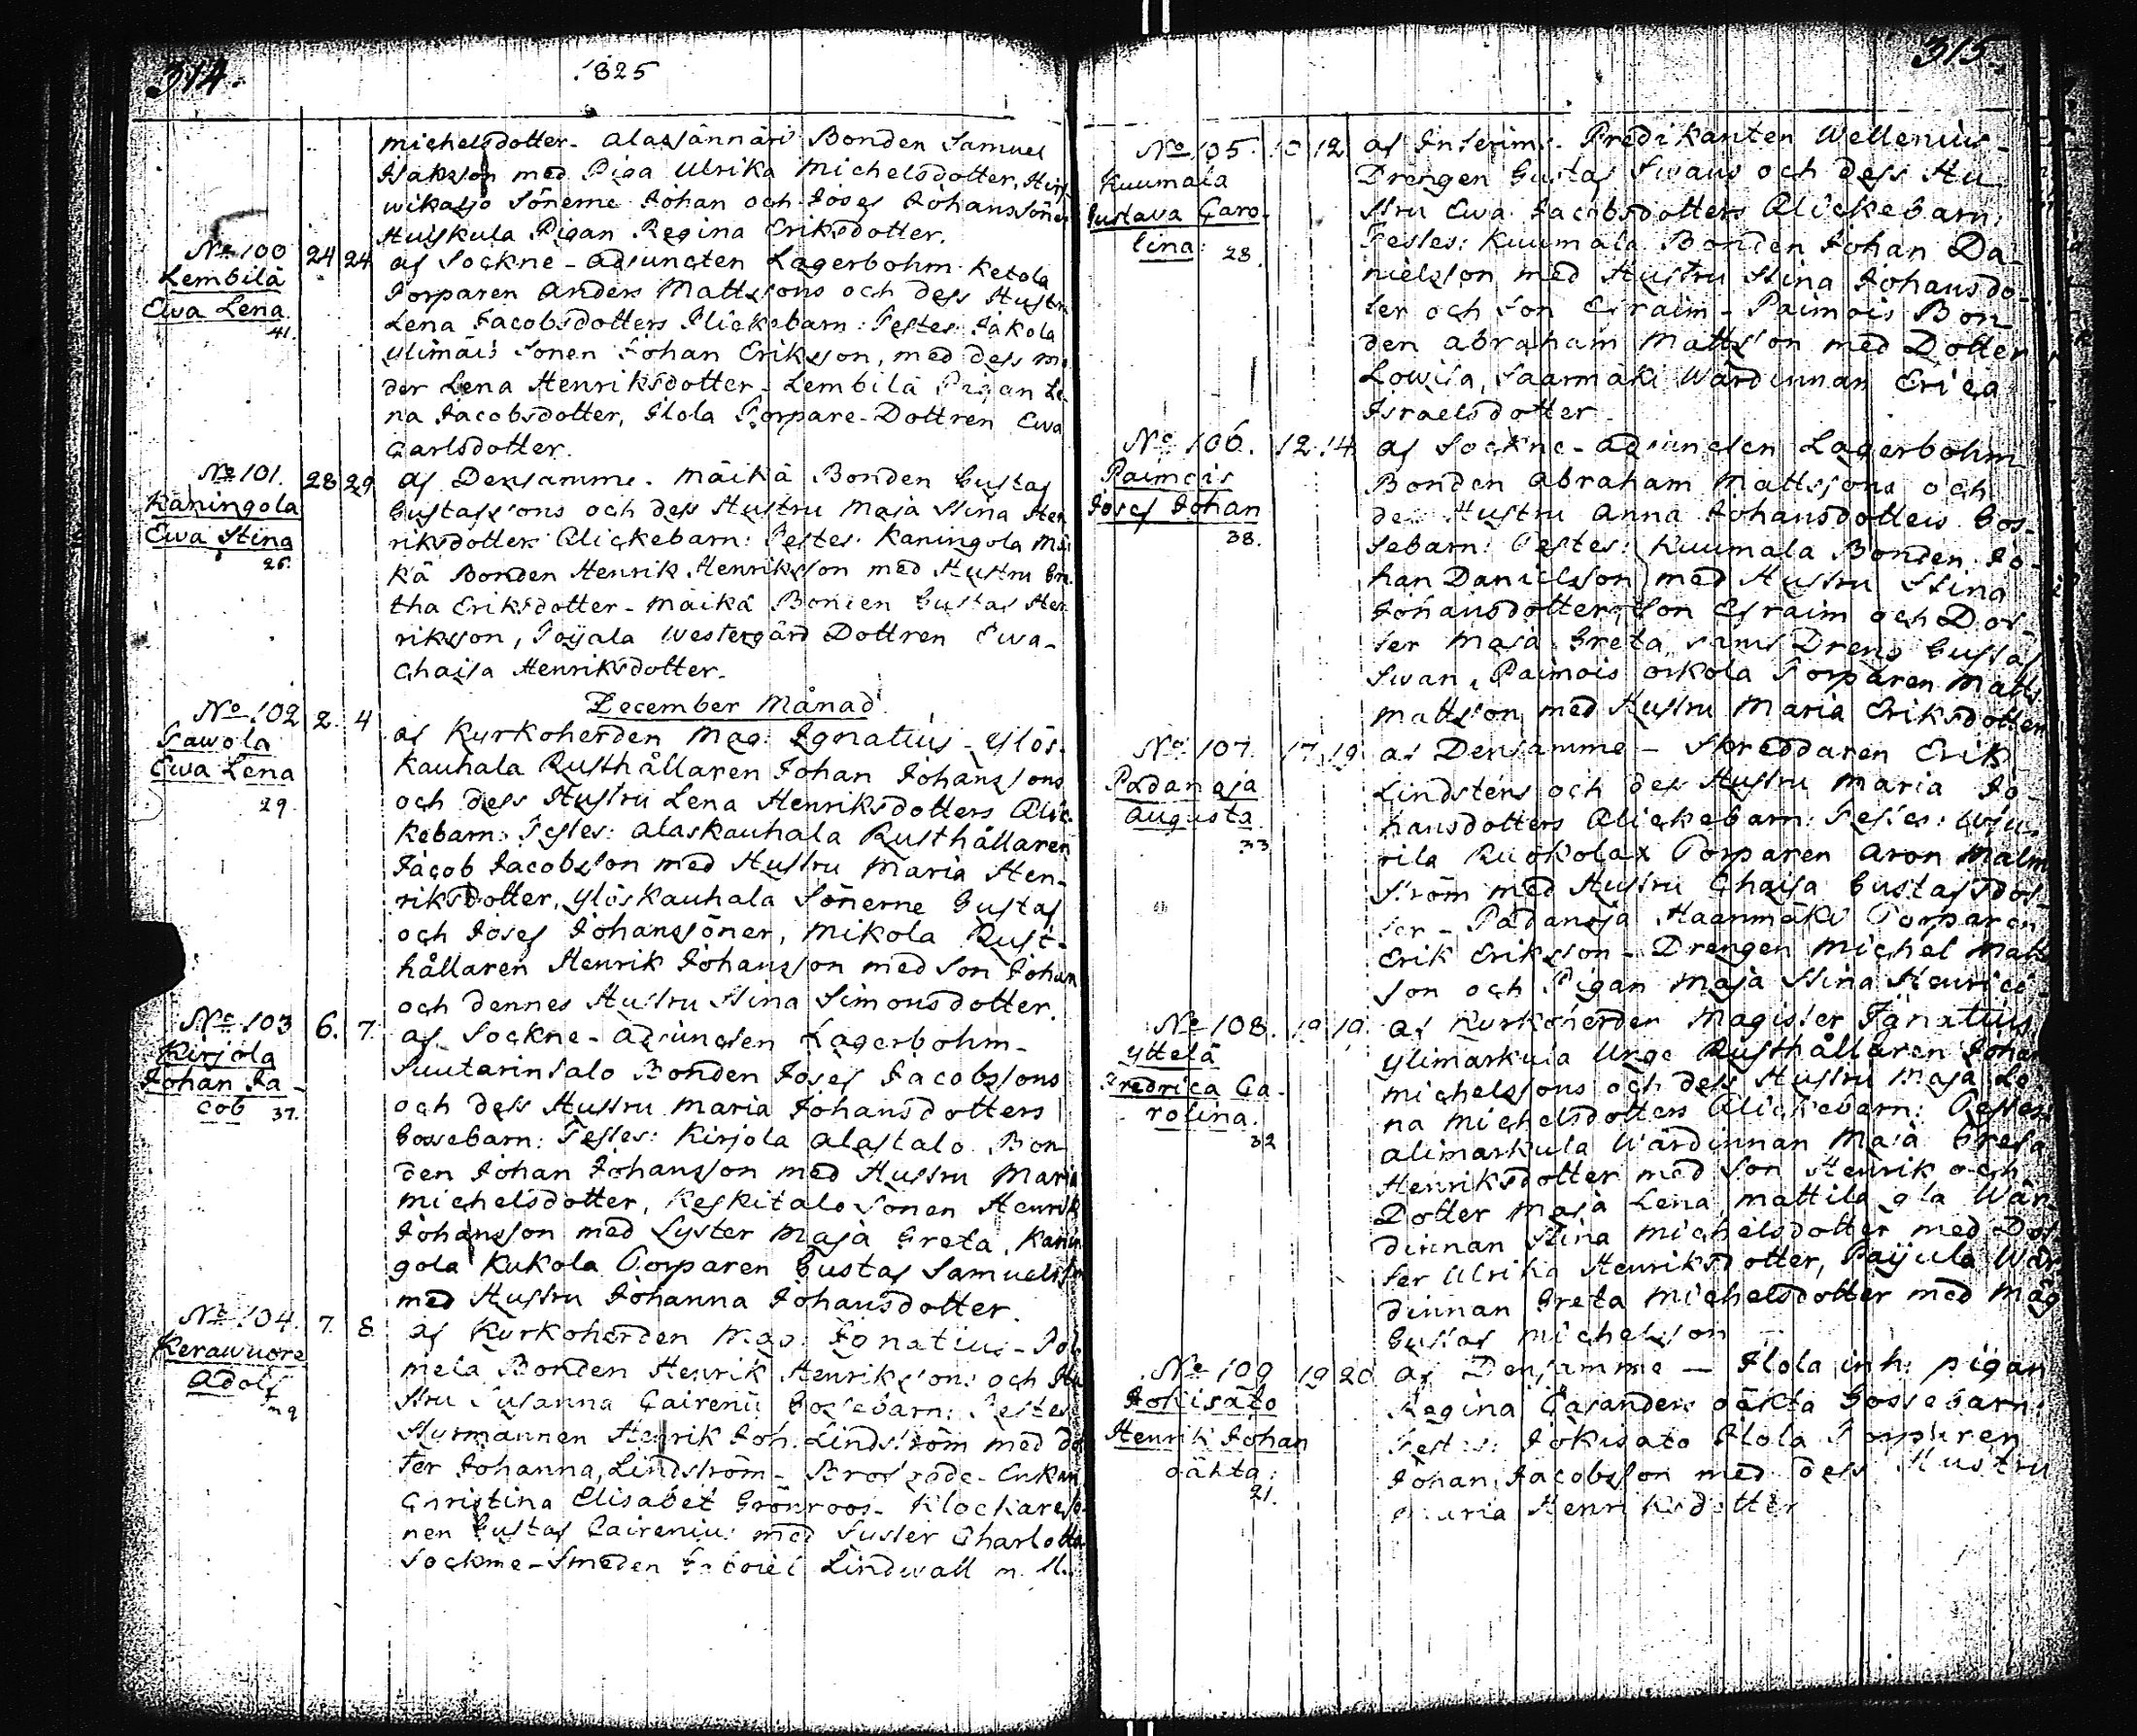 314.
1825
michelsdotter. Alasjännäri Bonden Samuel
Isaksson med Piga Ulrika Michelsdotter,
Sönerne Johan och Josef Johanssöner
Huskula Pigan Regina Eriksdotter.
No 100
Lembilä
Ewa Lena
41.
24 24
af Sockne-Adjuncten Lagerbohm. Ketola
Torparen Anders Mattssons och dess Hustru
Lena Jacobsdotters Flickebarn: Testes: Jakola
Ulimäis Sonen Johan Eriksson, med dess mo
der Lena Henriksdotter - Lembilä Pigan Le
na Jacobsdotter, Ilola Torpare-Dottren Ewa
Carlsdotter.
No 101.
Kaningola
Ewa Stina
26.
28 29
af Densamme. Mäikä Bonden Gustaf
Gustafssons och dess Hustru Maja Stina Hen
riksdotters Flickebarn: Testes: Kaningola Mäi
kä Bonden Henrik Henriksson med Hustru Gre
tha Eriksdotter - Mäikä Bonden Gustaf Hen
riksson, Toijala Westergård Dottren Ewa-
Chaisa Henriksdotter.
December Månad
No 102
Sawola
Ewa Lena
29.
2. 4
af Kyrkoherden Mag: Ignatius - Ylös-
kauhala Rusthållaren Johan Johanssons
och dess Hustru Lena Henriksdotters Flic-
kebarn: Testes: Alaskauhala Rusthållaren
Jacob Jacobsson med Hustru Maria Hen-
riksdotter, Ylöskauhala Sönerne Gustaf
och Josef Johanssöner, Mikola Rust-
hållaren Henrik Johansson med Son Johan
och dennes Hustru Stina Simonsdotter.
No 103
Kirjola
Johan Ja-
cob 37.
6. 7.
af Sockne-Adjuncten Lagerbohm-
Suutarinsalo Bonden Josef Jacobssons
och dess Hustru Maria Johansdotters
Gossebarn: Testes: Kirjola Alastalo Bon
den Johan Johansson med Hustru Maria
Michelsdotter, Keskitalo Sonen Henrik
Johansson med Syster Maja Greta, Kanin
gola Kukola Torparen Gustaf Samuelsson
med Hustru Johanna Johansdotter.
No 104.
Kerawuore
Adolf
7. 8
af Kyrkoherden Mag: Ignatius -
mela Bonden Henrik Henrikssons och Hu
stru Susanna Cairenii Gossebarn: Testes
Styrmannen Henrik Joh. Lindström med dot
ter Johanna Lindström - Enkan
Christina Elisabet Grönroos - Klockareso
nen Gustaf Cairenius med Syster Charlotta
Sockne-Smeden Gabriel Lindwall m. fl.
315.
No 105.
Kuumala
Gustava Caro-
lina 28.
10 12
af Interims-Predikanten Wellenius-
Drengen Gustaf Swans och dess Hu
stru Ewa Jacobsdotters Flickebarn:
Testes: Kuumala Bonden Johan Da-
nielsson med Hustru Stina Johansdo-
ter och Son Efraim - Paimois Bon
den Abraham Mattsson med Dotter
Lowisa, Saarmäki Wärdinnan Erica
Israelsdotter.
No 106.
Paimois
Josef Johan
38.
12 14
af Sockne-Adjuncten Lagerbohm
Bonden Abraham Mattssons och
dess Hustru Anna Johansdotters Gos-
sebarn: Testes: Kuumala Bonden Jo-
han Danielsson med Hustru Stina
Johansdotter, Son Efraim och Dot-
ter Maja Greta, samt Dreng Gustaf
Swan, Paimois Torparen Matts
Mattsson med Hustru Maria Eriksdotter
No 107.
Padanoja
Augusta
33
17 19
af Densamme - Skreddaren Erik
Lindstens och dess Hustru Maria Jo-
hansdotters Flickebarn: Testes:
rila Ruokolax Torparen Aron Malm
ström med Hustru Chaisa Gustafsdot-
ter - Padanoja Haanmäki Torparen
Erik Eriksson - Drengen Michel Matts
son och Pigan Maja Stina Henrici
No 108.
Yttelä
Fredrica Ca-
rolina.
32
19 19.
af Kyrkoherden Magister Ignatius
Ylimarkula Unge Rusthållaren Johan
Michelssons och dess Hustru Maja Le
na Michelsdotters Flickebarn: Testes
Alimarkula Wärdinnan Maja Greta
Henriksdotter med Son Henrik och
Dotter Maja Lena, Mattila gla Wär
dinnan Stina Michelsdotter med Dot
ter Ulrika Henriksdotter, Paijula Wär
dinnan Greta Michelsdotter med Måg
Gustaf Michelsson
No 109
Jokisato
Henrik Johan
oäkta.
21.
19 20
af Densamme - Ilola inh: pigan
Regina Casanders oäkta Gossebarn:
Testes: Jokisato Ilola Torparen
Johan Jacobsson med dess Hustru
Maria Henriksdotter